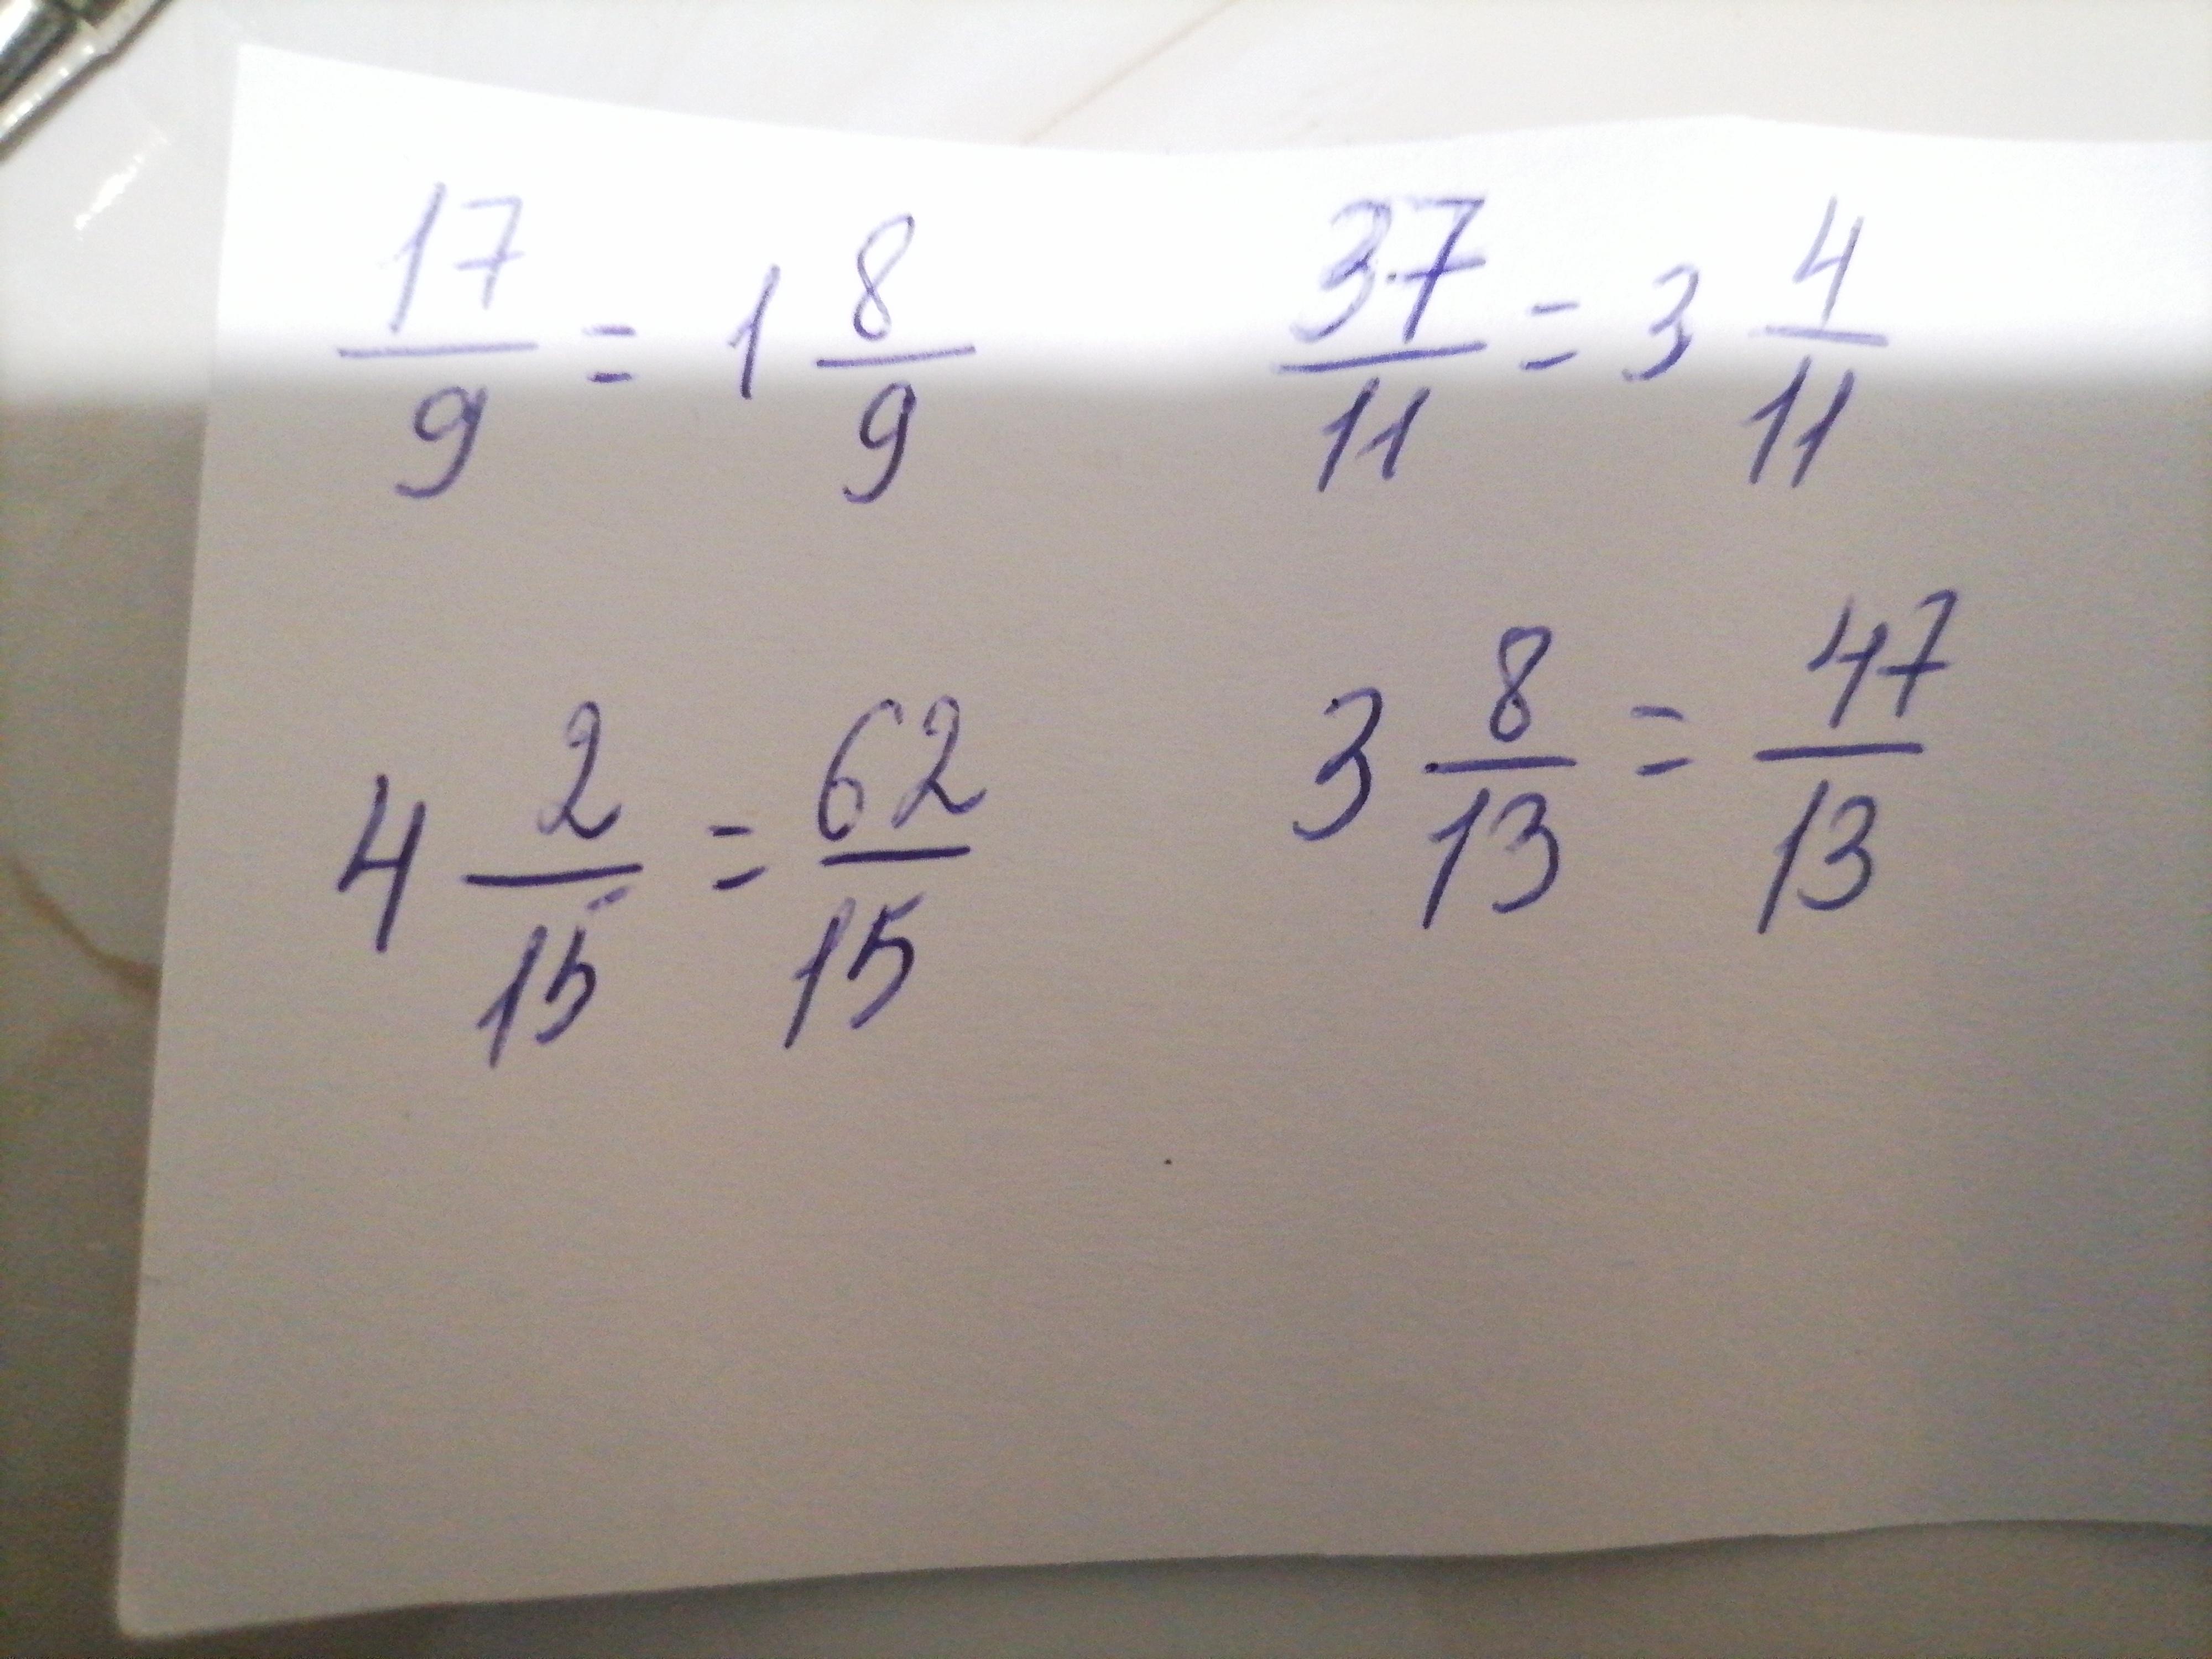 17/9 = 1 8/9    37/11 = 3 4/11
4 2/15 = 62/15    3 8/13 = 47/13